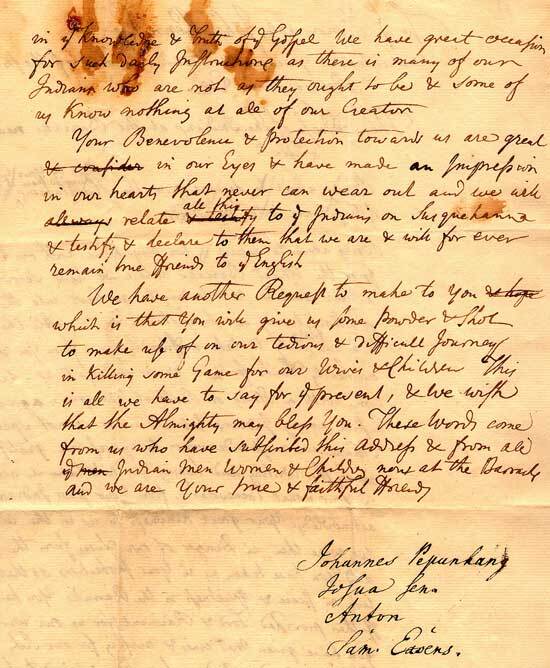 in yͤ Knowledge & Truth of yͤ Gospel We have great occasion
for such dayly Instructions as there is many of our
Indians who are not as they ought to be & some of
us Know nothing at ale of our Creator
Your Benevolence & Protection towards us are great
& consider in our Eyes & have made an Impression
in our hearts that never can wear out and we will
allways relate & testify all this to yͤ Indians on Susquehanna
& testify & declare to them that we are & will for ever
remain true Friends to yͤ English
We have another Request to make to You & hope
which is that You will give us some Powder & Shot
to make use of on our tedious & difficult Journey
in Killing some Game for our Wives & Children This
is all we have to say for yͤ present, & We wish
that the Almighty may bless You. These Words come
from us who have subscribed this Address & from ale
yͤ men Indian Men Women & Children now at the Barracks
and we are Your true & faithful Friends
Johannes Pepunhang
Josua Sen.
Anton
Sam. Evens.